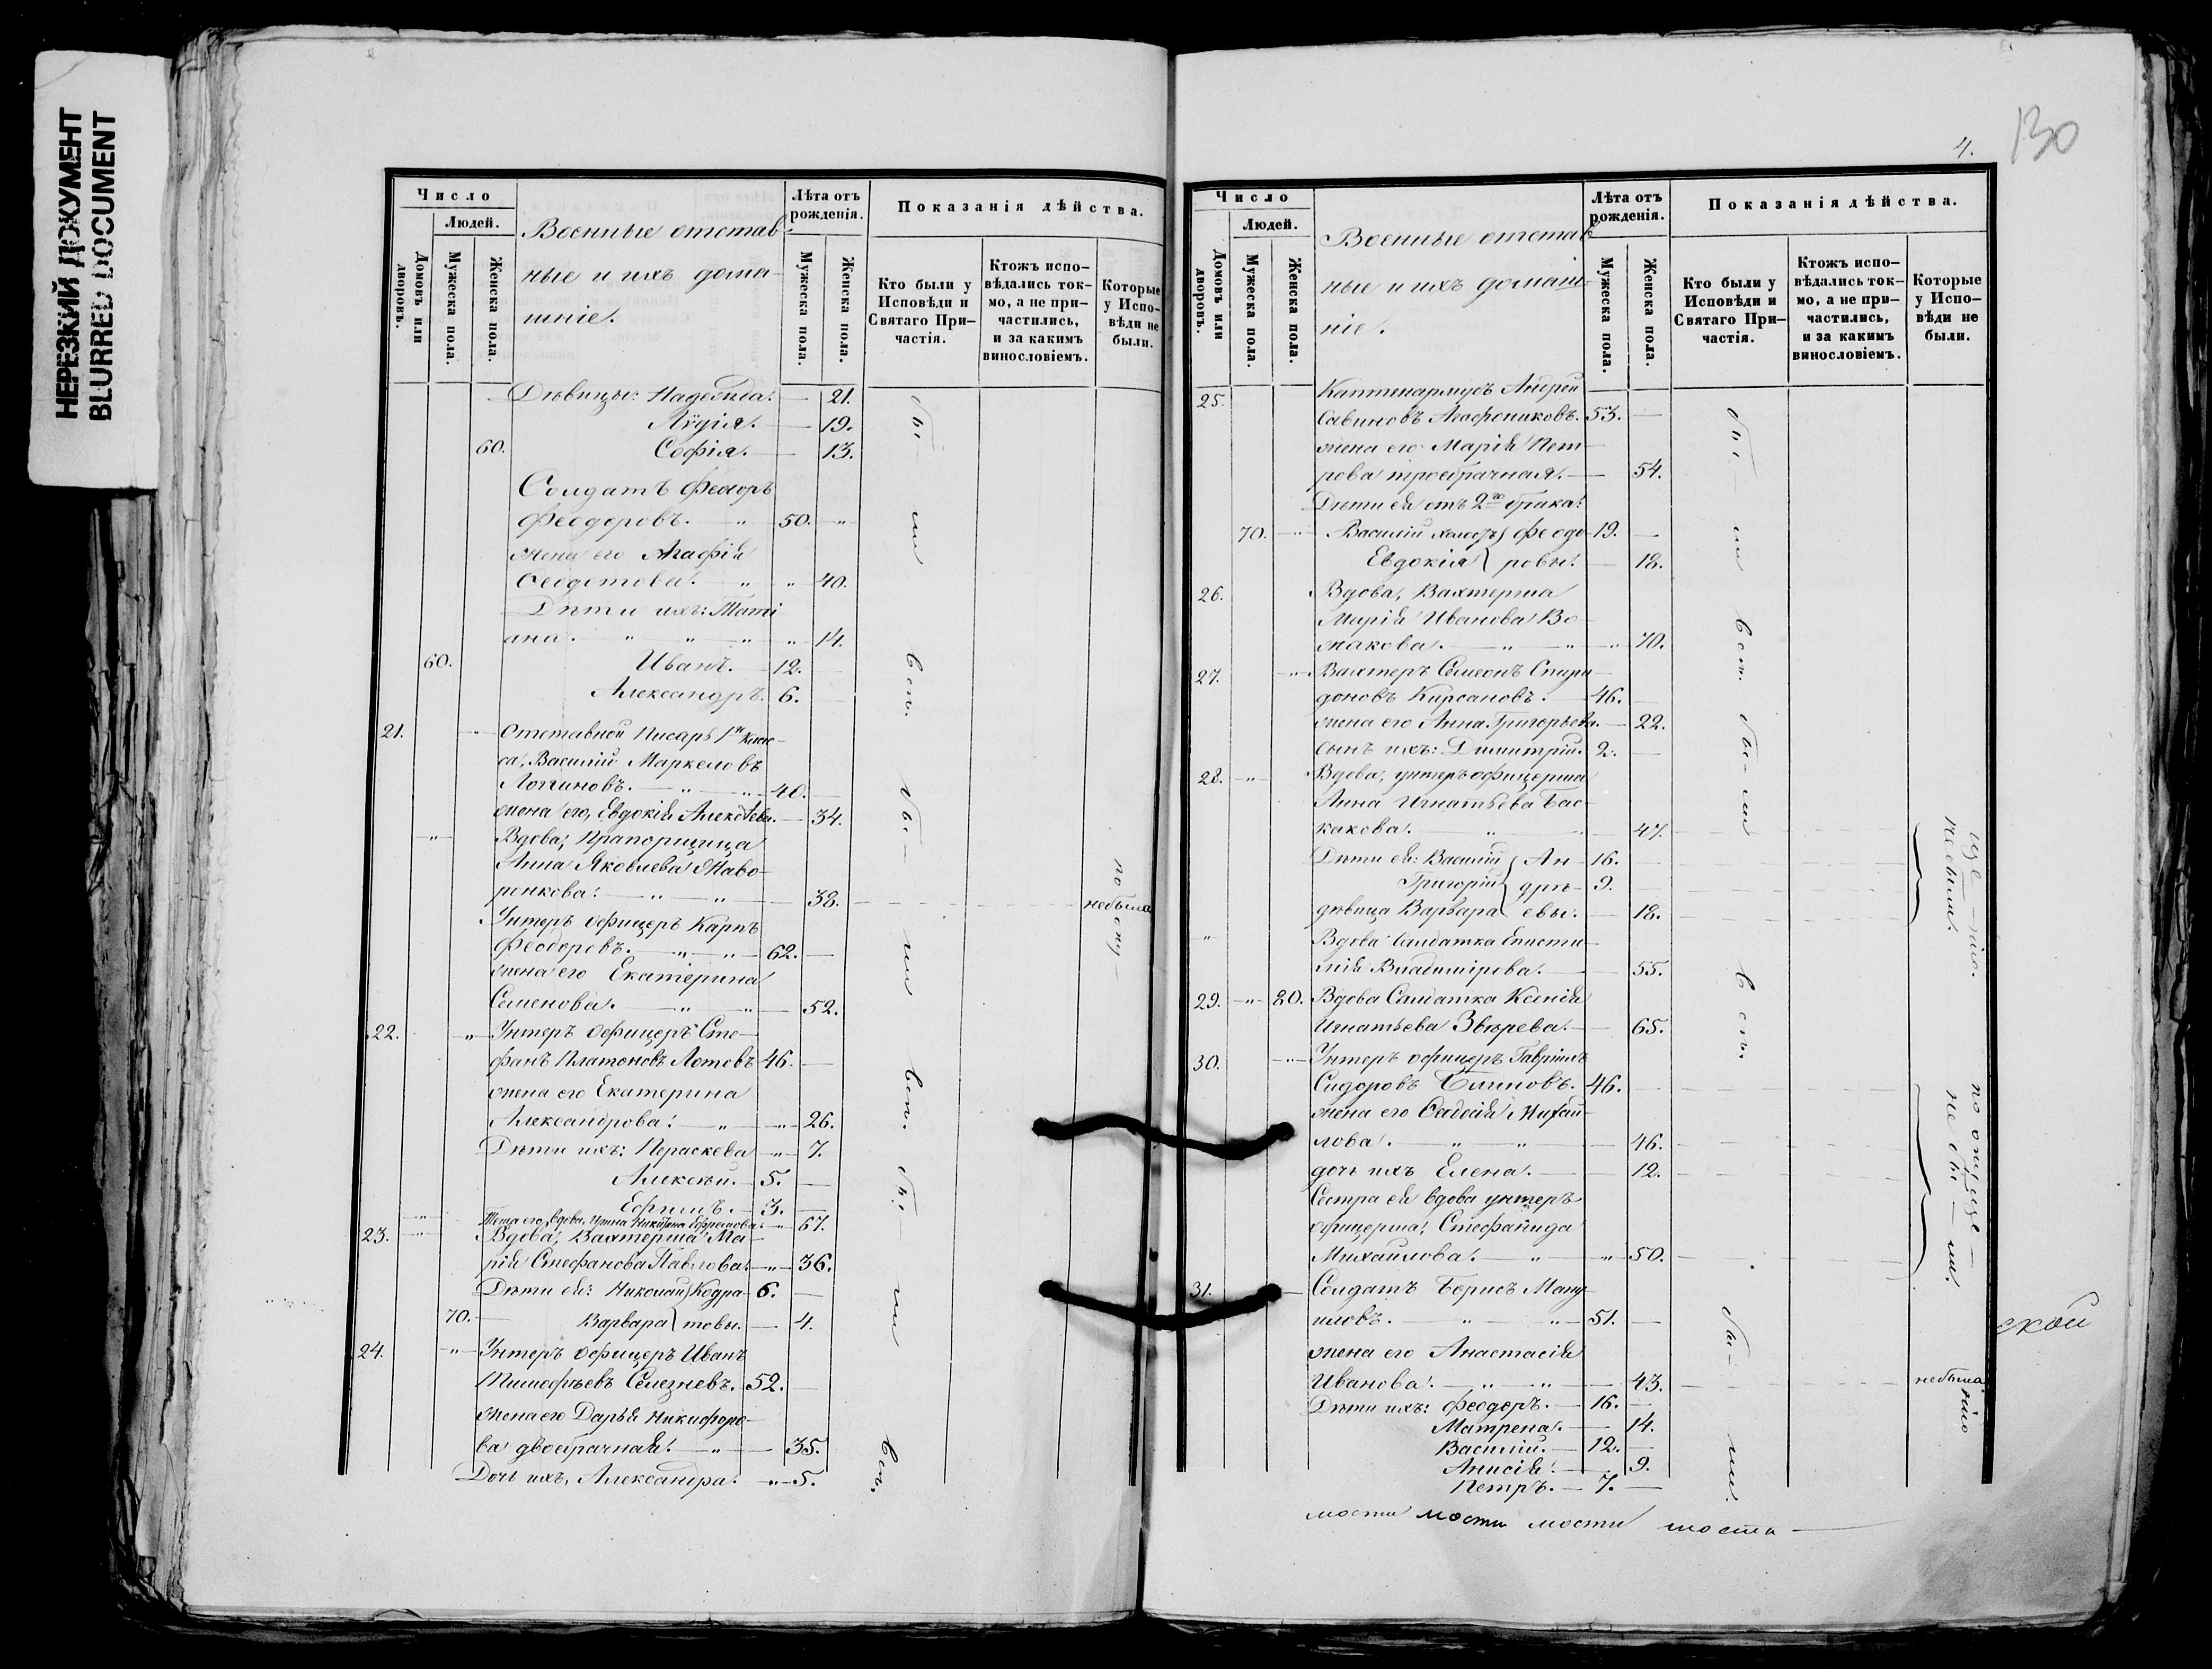 НЕРЕЗКИЙ ДОКУМЕНТ
BLURRED DOCUMENT
Число
Людей.
Домовъ или дворовъ.
Мужеска пола.
Женска пола.
Военные отстав
ные и ихъ дома-
шніе.
Лѣта отъ рожденія.
Мужеска пола.
Женска пола.
Показанія дѣйства.
Кто были у Исповѣди и Святаго При-частія.
Ктожъ испо-вѣдались ток-мо, а не при-частились, и за какимъ винословіемъ.
Которые у Испо-вѣди не были.
Дѣвицы: Надежда. — 21.
Лѵдія. — 19.
60. Софія. — 13.
Солдатъ Феодоръ
Феодоровъ. " 50. "
жена его Агафія
Феодотова. " " 40.
Дѣти ихъ: Таті
ана. " " " " 14.
60. Иванъ. 12. —
Александръ. 6. —
21. " Отставной Писарь 1го клас-
са, Василій Маркеловъ
Логиновъ. " " 40. —
жена его, Евдокія Алексѣева. — 34.
" Вдова, Прапорщица
Анна Яковлева Жаво-
ронкова. " " — 38. не была
Унтеръ офицеръ Карпъ
Феодоровъ. " " 62. —
жена его Екатерина
Семенова. " " — 52.
22. " Унтеръ офицеръ Сте-
фанъ Платоновъ Лотовъ 46. —
жена его Екатерина
Александрова. " " 26.
Дѣти ихъ: Параскева " 7.
Алексѣй. 5. —
Ефимъ. 3. —
" Теща его, вдова, Ирина Никитина Ефремова. " 67.
23. " Вдова, Вахтерша Ма-
рія Стефанова Павлова. " 36.
Дѣти ея: Николай Кодра- 6. —
70. Варвара товы. — 4.
24. " Унтеръ офицеръ Иванъ
Тимофѣевъ Селезневъ. 52. —
жена его Дарья Никифоро-
ва двоебрачная. " — 35.
Дочь ихъ, Александра. " 5.
бы – ли вст. бы – ли вст. бы – ли вст.
4.
130
Число
Людей.
Домовъ или дворовъ.
Мужеска пола.
Женска пола.
Военные отстав
ные и ихъ домаш-
ніе.
Лѣта отъ рожденія.
Мужеска пола.
Женска пола.
Показанія дѣйства.
Кто были у Исповѣди и Святаго При-частія.
Ктожъ испо-вѣдались ток-мо, а не при-частились, и за какимъ винословіемъ.
Которые у Испо-вѣди не были.
25. Каптенармусъ Андрей
Савиновъ Агафониковъ. 53. —
жена его Марія Пет-
рова троебрачная. — 54.
Дѣти ея отъ 2го брака:
70. " Василій холостъ Феодо- 19. —
Евдокія ровы. — 18.
26. Вдова, Вахтерша
Марія Иванова Во-
жакова. " " " 70.
27. " Вахтеръ Семеонъ Спири-
доновъ Кирсановъ. 46. —
жена его Анна Григорьева. — 22.
сынъ ихъ: Димитрій. 2. —
28. " Вдова, унтеръ офицерша
Анна Игнатьева Бас-
какова. " " — 47.
Дѣти ея: Василій Ан- 16. —
Григорій дрѣ- 9. —
дѣвица Варвара евы. — 18.
не были.
" Вдова солдатка Еписти-
мія Владимірова. — 55.
29. " 80. Вдова Солдатка Ксенія
Игнатьева Звѣрева. — 65.
30. " Унтеръ офицеръ Гавріилъ
Сидоровъ Блиновъ. 46. —
жена его Феодосія Михай-
лова. " " — 46.
дочь ихъ Елена. — 12.
Сестра ея вдова унтеръ
офицерша, Стефанида
Михайлова. " " 50.
по отлуче –
не бы – ли.
31. Солдатъ Борисъ Ману-
иловъ. " " 51. —
жена его Анастасія
Иванова. " " — 43. не была
Дѣти ихъ: Феодоръ. 16. —
Матрена. — 14.
Василій. 12. —
Анисія. — 9.
Петръ. 7. —
бы – ли вст. бы – ли вст. бы – ли.
ской
мости мости мости мости